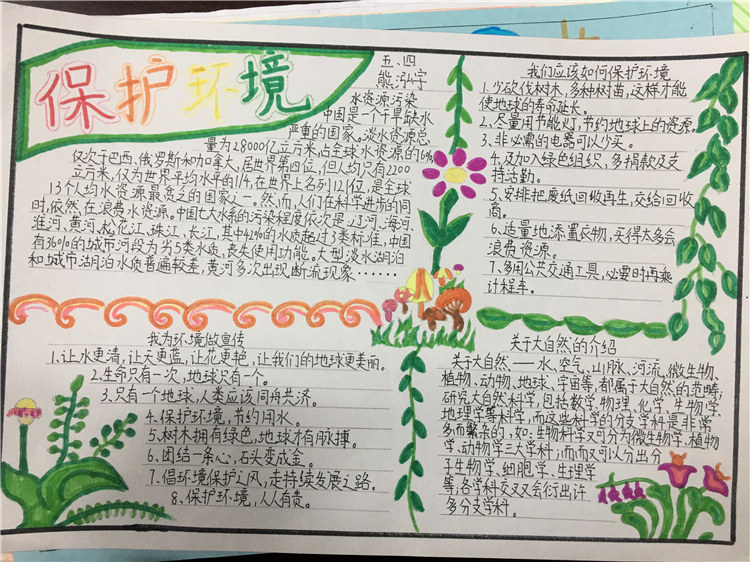 保护环境
五、四
熊泓宇
水资源污染
中国是一个干旱缺水
严重的国家。淡水资源总
量为28000亿立方米,占全球水资源的6%,
仅次于巴西、俄罗斯和加拿大,居世界第四位,但人均只有2200
立方米,仅为世界平均水平的1/4,在世界上名列121位,是全球
13个人均水资源最贫乏的国家之一。然而,人们在科学进步的同
时,依然在浪费水资源。中国七大水系的污染程度依次是:辽河、海河、
淮河、黄河、松花江、珠江、长江,其中42%的水质超过3类标准,中国
有36%的城市河段为劣5类水质,丧失使用功能。大型淡水湖泊
和城市湖泊水质普遍较差,黄河多次出现断流现象……
我们应该如何保护环境
1、少砍伐树木,多种树苗,这样才能
使地球的寿命延长。
2、尽量用节能灯,节约地球上的资源。
3、非必需的电器可以少买。
4、及加入绿色组织,多捐款及支
持活勤。
5、安排把废纸回收再生,交给回收
商。
6、适量地添置衣物,买得太多会
浪费资源。
7、多用公共交通工具,必要时再乘
计程车。
我为环境做宣传
1、让水更清,让天更蓝,让花更艳,让我们的地球更美丽。
2、生命只有一次,地球只有一个。
3、只有一个地球,人类应该同舟共济。
4、保护环境,节约用水。
5、树木拥有绿色,地球才有脉搏。
6、团结一条心,石头变成金。
7、倡环境保护之风,走持续发展之路。
8、保护环境,人人有责。
关于大自然的介绍
关于大自然——水、空气、山脉、河流、微生物、
植物、动物、地球、宇宙等,都属于大自然的范畴;
研究大自然科学,包括数学、物理、化学、生物学、
地理学等科学,而这些科学的分支学科是非常
多而繁杂的,如:生物科学又可分为微生物学、植物
学、动物学三大学科;而而又可以分出分
子生物学、细胞学、生理学
等,各学科交叉又会衍出许
多分支学科。